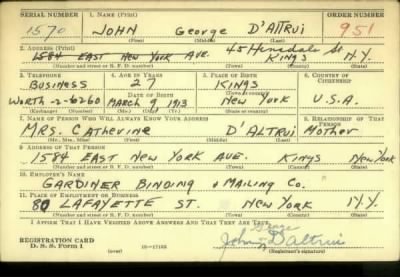 SERIAL NUMBER 1. NAME (Print) ORDER NUMBER
1570 JOHN George D'ALTRUI 951
(First) (Middle) (Last)
2. ADDRESS (Print) 45 Hinsdale St
1584 EAST NEW YORK AVE. KINGS N.Y.
(Number and street or R. F. D. number) (Town) (County) (State)
3. TELEPHONE 4. AGE IN YEARS 5. PLACE OF BIRTH 6. COUNTRY OF CITIZENSHIP
BUSINESS 27 KINGS
DATE OF BIRTH (Town or county)
WORTH-2-6260 MARCH 9 1913 NEW YORK U.S.A.
(Exchange) (Number) (Mo.) (Day) (Yr.) (State or country)
7. NAME OF PERSON WHO WILL ALWAYS KNOW YOUR ADDRESS 8. RELATIONSHIP OF THAT PERSON
MRS. CATHERINE D'ALTRUI MOTHER
(Mr., Mrs., Miss) (First) (Middle) (Last)
9. ADDRESS OF THAT PERSON
1584 EAST NEW YORK AVE. KINGS NEW YORK
(Number and street or R. F. D. number) (Town) (County) (State)
10. EMPLOYER'S NAME
GARDINER BINDING & MAILING CO.
11. PLACE OF EMPLOYMENT OR BUSINESS
80 LAFAYETTE ST. NEW YORK N.Y.
(Number and street or R. F. D. number) (Town) (County) (State)
I AFFIRM THAT I HAVE VERIFIED ABOVE ANSWERS AND THAT THEY ARE TRUE.
REGISTRATION CARD George
D. S. S. Form 1 (over) 16—17105 John D'altrui
(Registrant's signature)